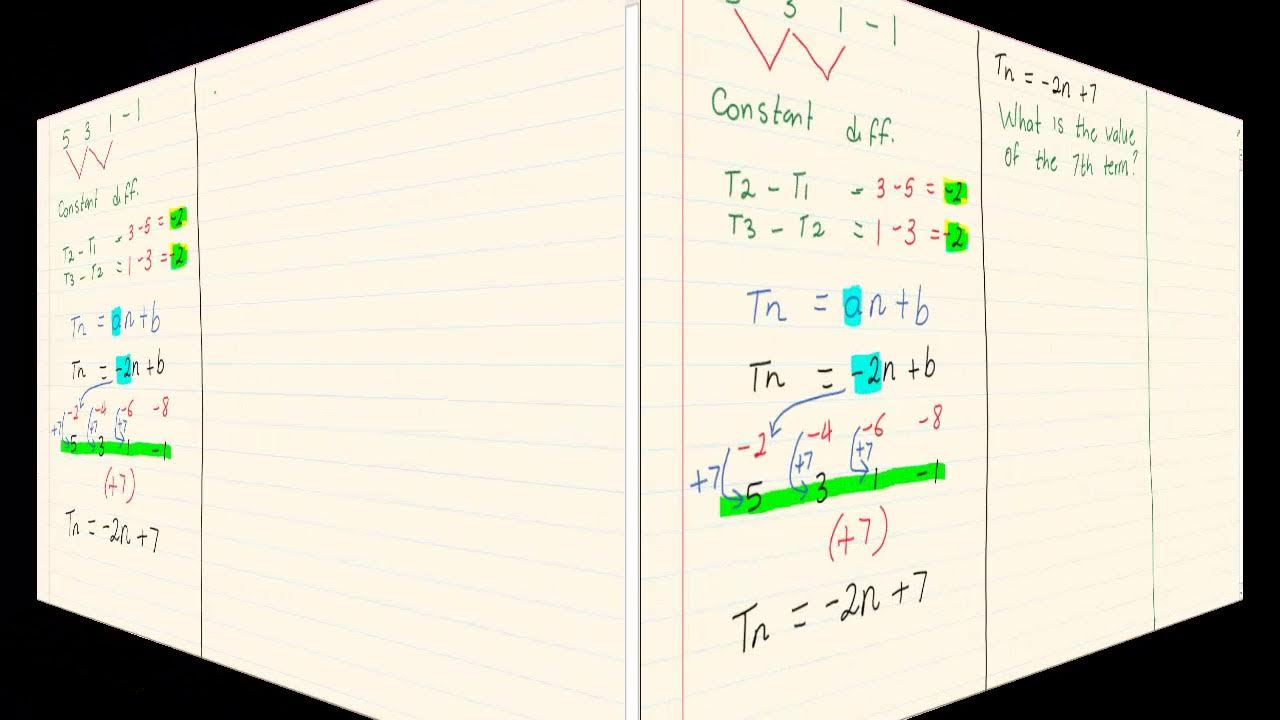 5 3 1 -1
Constant diff.
T2 - T1 = 3-5 = -2
T3 - T2 = 1-3 = -2
Tn = an+b
Tn = -2n+b
-2 -4 -6 -8
+7 +7 +7
5 3 1 -1
(+7)
Tn = -2n+7
3 1 -1
Constant diff.
T2 - T1 = 3-5 = -2
T3 - T2 = 1-3 = -2
Tn = an+b
Tn = -2n+b
-2 -4 -6 -8
+7 +7 +7
5 3 1 -1
(+7)
Tn = -2n+7
Tn = -2n+7
What is the value
of the 7th term?